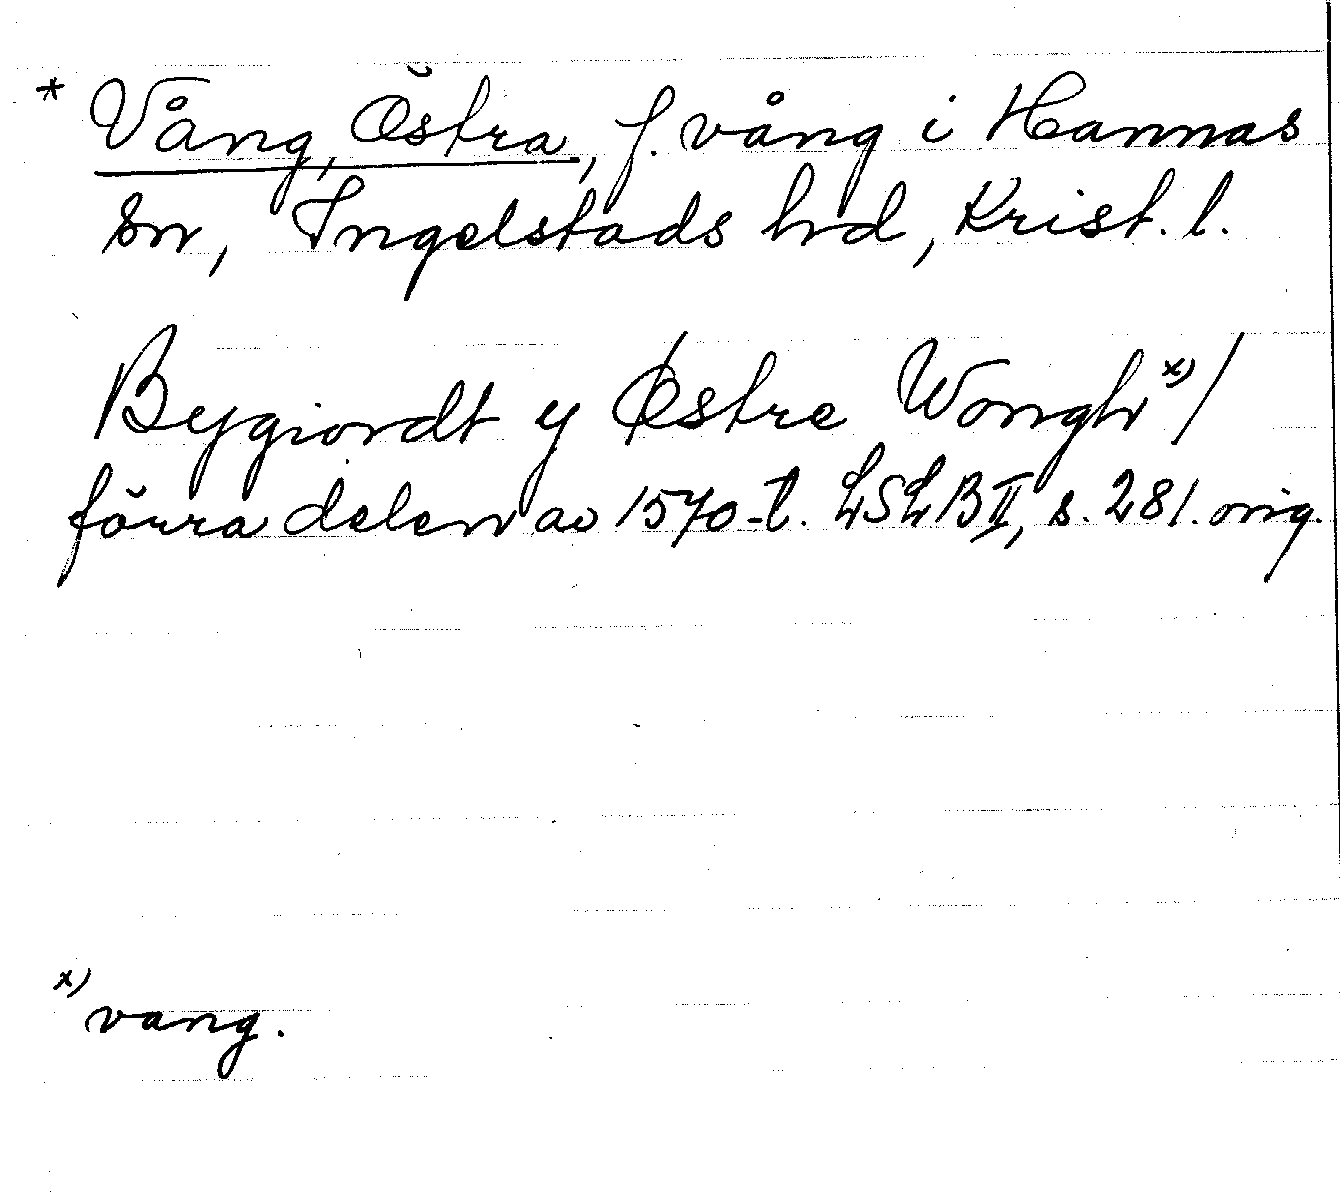 * Vång, Östra, f. vång i Hannas
sn, Ingelstads hd, Krist. l.
Bygiordt y Østre Wongh x) /
förra delen av 1570-t. LSLB II, s. 281. orig.
x) vang.